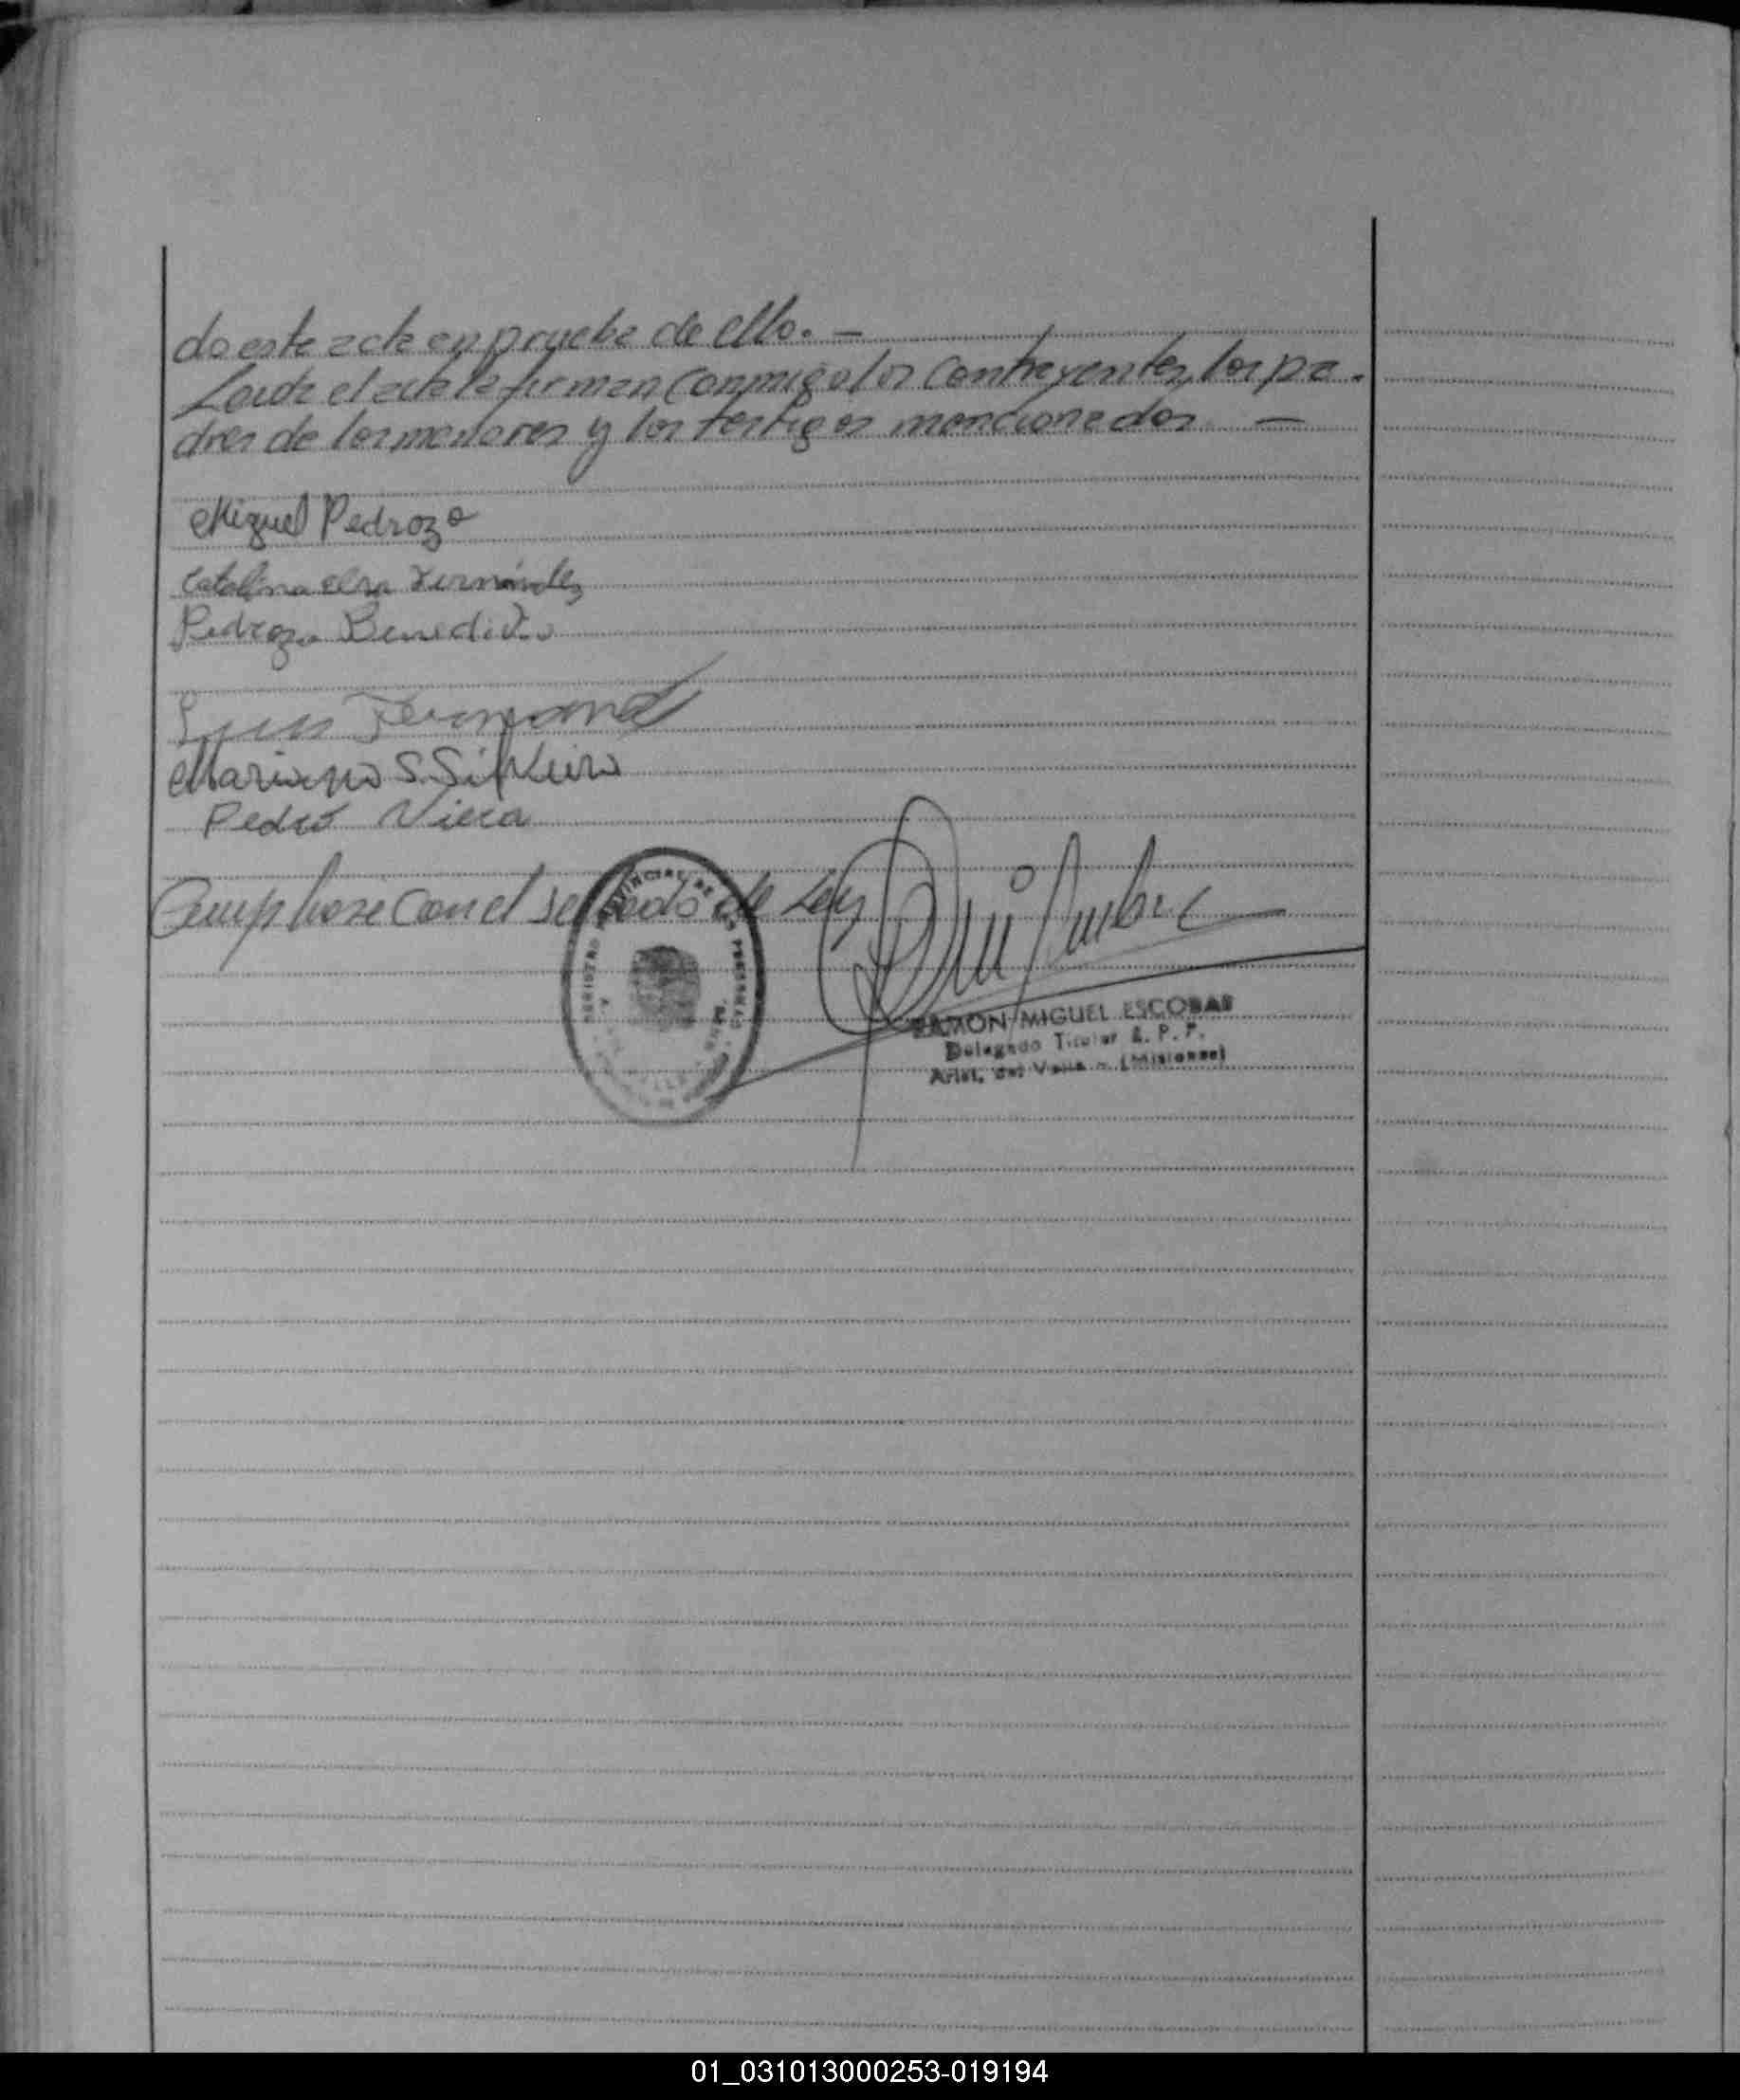 do este acta en prueba de ello. —
Leida el acta la firman conmigo los contrayentes, los pa-
dres de los menores y los testigos mencionados —
Miguel Pedrozo
Catalina elsa Fernández
Pedrozo Benedicto
Luis Fernand
Mariano S. Silveira
Pedro Viera
Cumpliose con el sellado de Ley
REGISTRO PROVINCIAL DE LAS PERSONAS
RAMON MIGUEL ESCOBAR
Delegado Titular R. P. P.
Arist. del Valle - (Misiones)
01_031013000253-019194